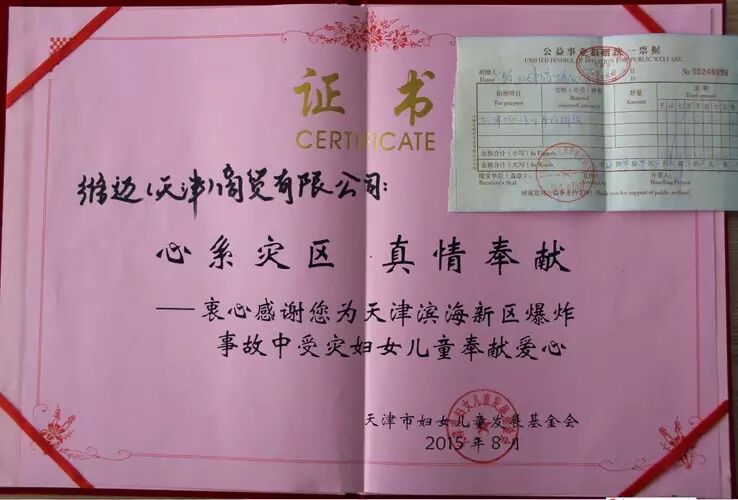 证书
CERTIFICATE
缔迈(天津)商贸有限公司:
心系灾区 真情奉献
——衷心感谢您为天津滨海新区爆炸
事故中受灾妇女儿童奉献爱心
天津市妇女儿童发展基金会
2015年8月
公益事业捐赠统一票据
UNIFIED INVOICE OF DONATION FOR PUBLIC WELFARE
捐赠人:
Donor
№ 00246096
捐赠项目
For purpose
实物(外币)种类
Material objects(Currency)
数量
Amount
金额
Total amount
金额合计(小写)In Figures
金额合计(大写)In Words
接受单位(盖章):
Receiver's Seal
Handling Person
感谢您对公益事业的支持! Thank you for support of public welfare!